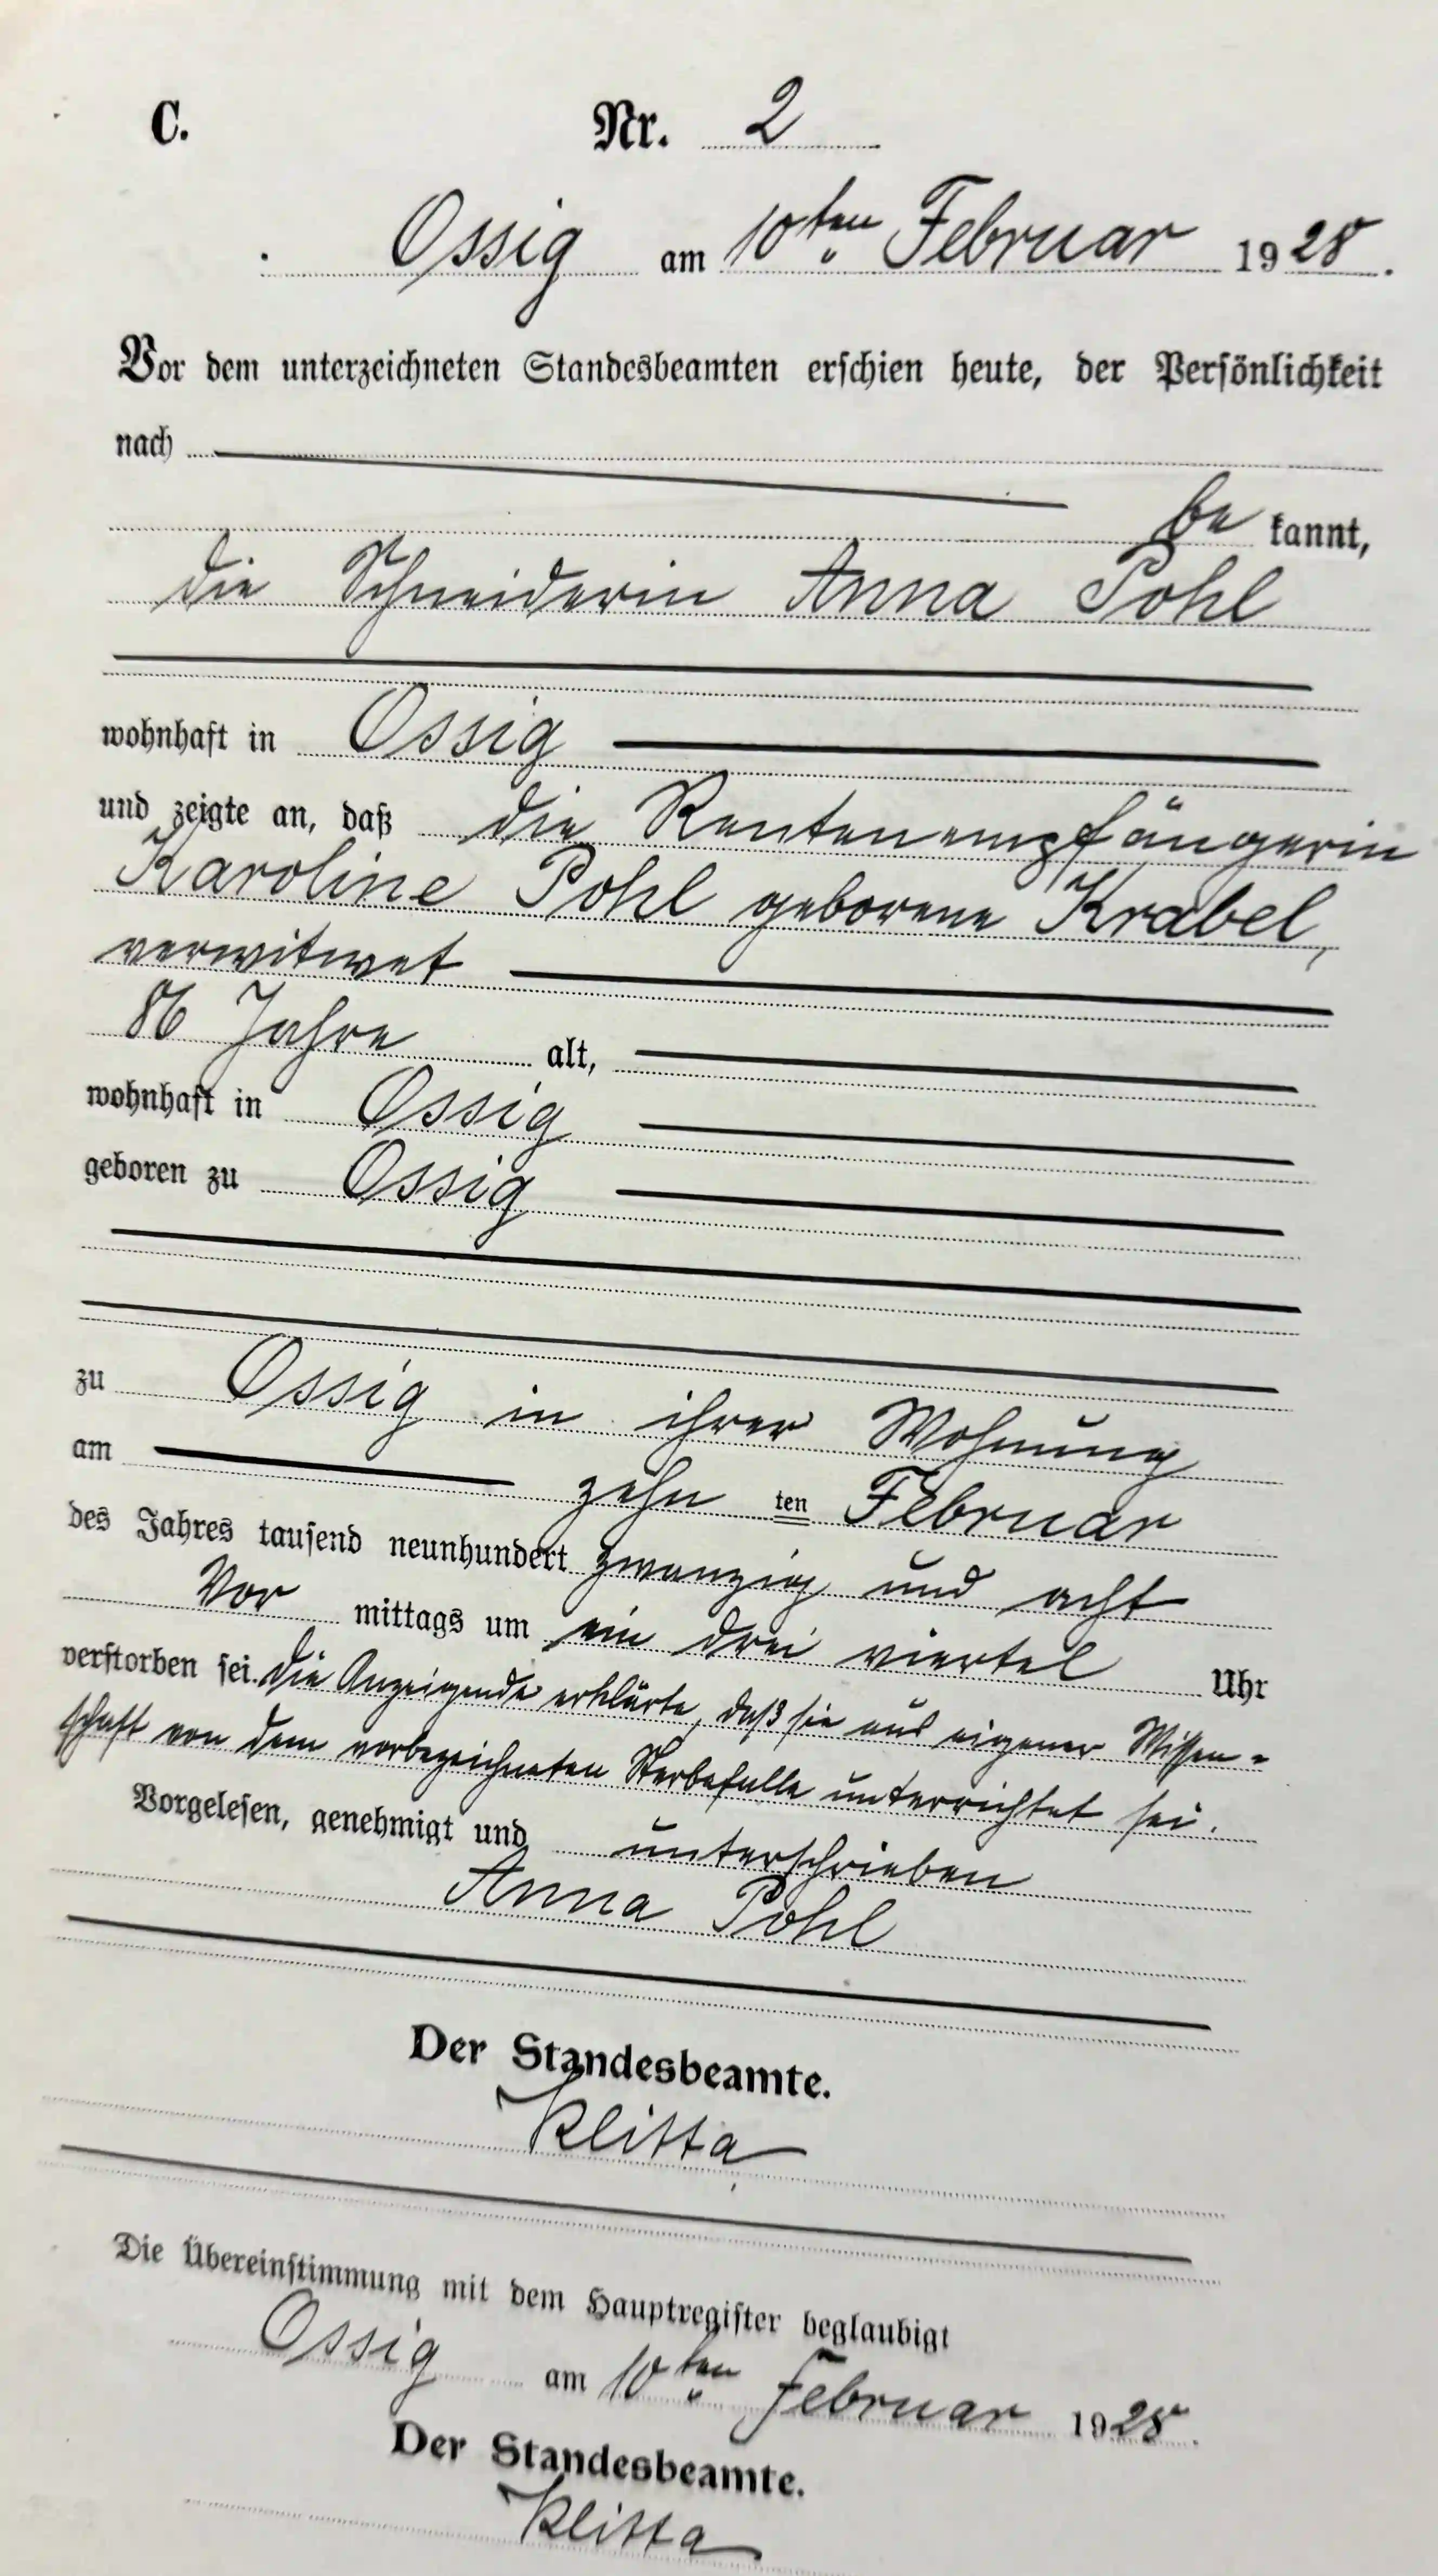 C.
Nr. 2
Ossig am 10ten Februar 1928.
Vor dem unterzeichneten Standesbeamten erschien heute, der Persönlichkeit
nach
be kannt,
die Schneiderin Anna Pohl
wohnhaft in Ossig
und zeigte an, daß die Rentenempfängerin
Karoline Pohl geborene Krabel,
verwitwet
86 Jahre alt,
wohnhaft in Ossig
geboren zu Ossig
zu Ossig in ihrer Wohnung
am zehn ten Februar
des Jahres tausend neunhundert zwanzig und acht
Vor mittags um ein drei viertel Uhr
verstorben sei. Die Anzeigende erklärte, daß sie aus eigener Wissen-
schaft von dem vorbezeichneten Sterbefalle unterrichtet sei.
Vorgelesen, genehmigt und unterschrieben
Anna Pohl
Der Standesbeamte.
Klitta
Die Übereinstimmung mit dem Hauptregister beglaubigt
Ossig am 10ten Februar 1928.
Der Standesbeamte.
Klitta